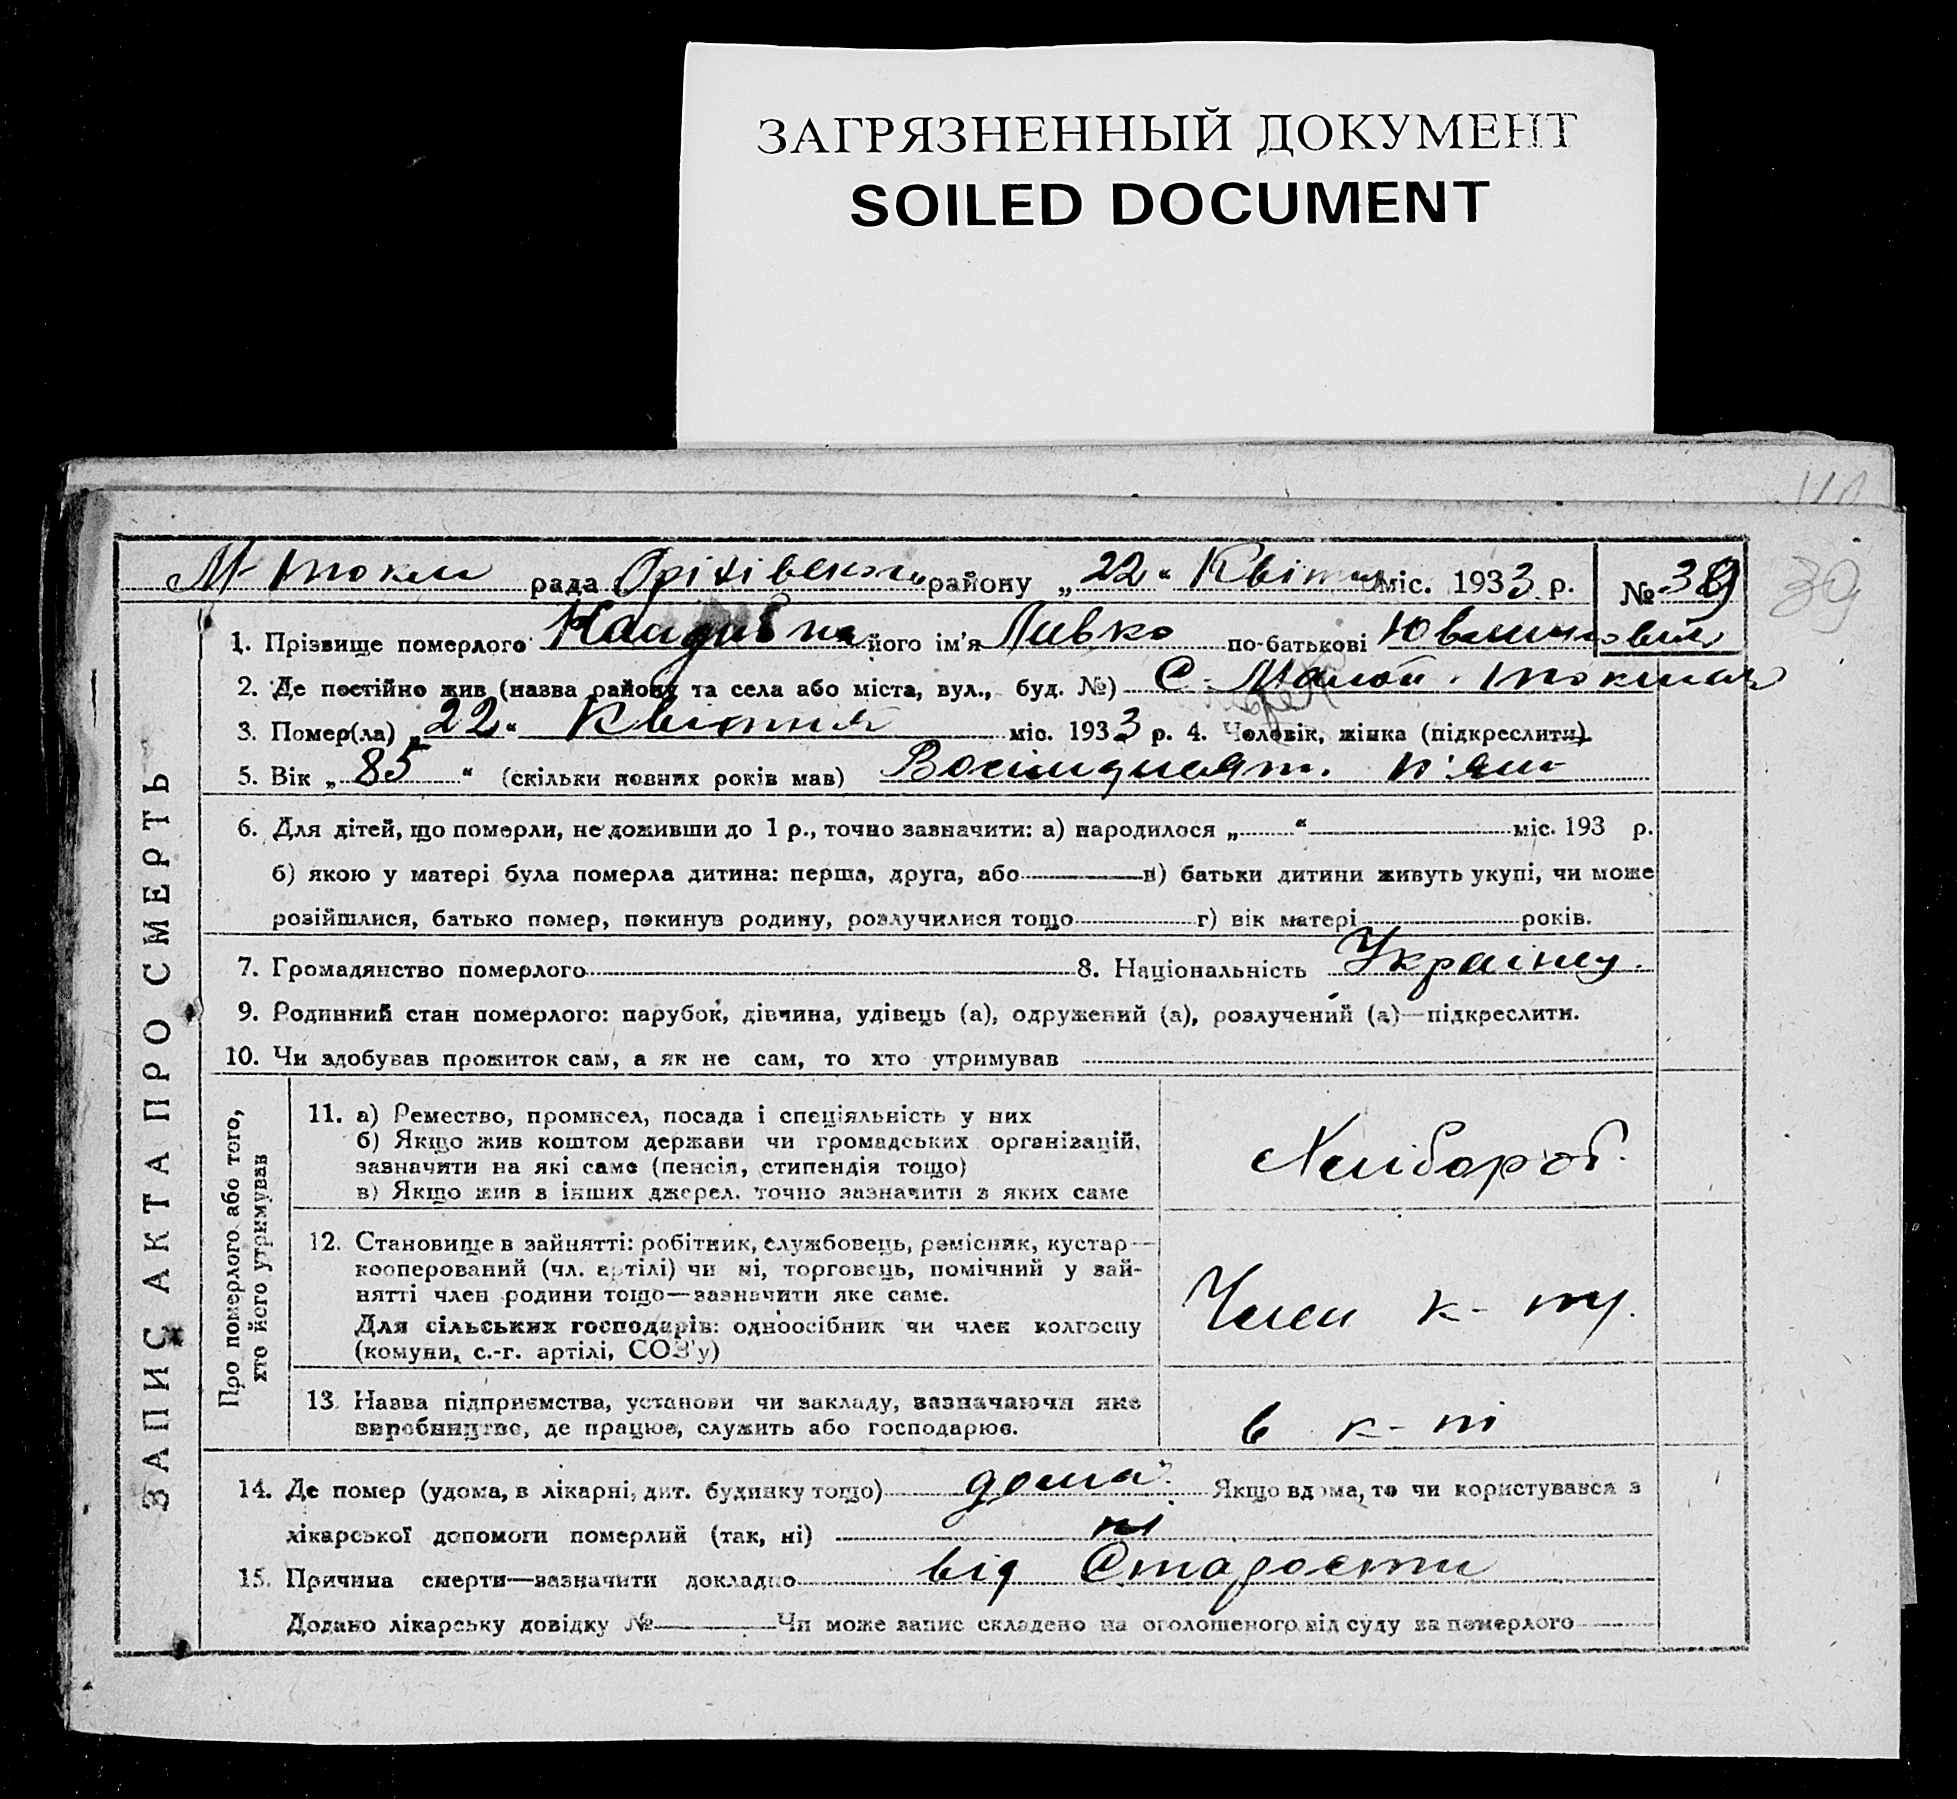 ЗАГРЯЗНЕННЫЙ ДОКУМЕНТ
SOILED DOCUMENT
39
М Токм рада Оріхівського району „22“ Квітня міс. 1933 р. № 39
1. Прізвище померлого його ім'я Ливко по-батькові
2. Де постійно жив (назва району та села або міста, вул., буд. №) С. Малой Токмач
3. Помер(ла) „22“ Квітня міс. 1933 р. 4. Чоловік, жінка (підкреслити).
5. Вік „85“ (скільки повних років мав) Восімдисят. п'ять
6. Для дітей, що померли, не доживши до 1 р., точно зазначити: а) народилося „ “ міс. 193 р.
б) якою у матері була померла дитина: перша, друга, або в) батьки дитини живуть укупі, чи може
розійшлися, батько помер, покинув родину, розлучилися тощо г) вік матері років.
7. Громадянство померлого 8. Національність Українец.
9. Родинний стан померлого: парубок, дівчина, удівець (а), одружений (а), розлучений (а)—підкреслити.
10. Чи здобував прожиток сам, а як не сам, то хто утримував
ЗАПИС АКТА ПРО СМЕРТЬ
Про померлого або того,
хто його утримував
11. а) Ремество, промисел, посада і спеціяльність у них
б) Якщо жив коштом держави чи громадських організацій,
зазначити на які саме (пенсія, стипендія тощо)
в) Якщо жив з інших джерел, точно зазначити з яких саме
Хлібороб.
12. Становище в зайнятті: робітник, службовець, ремісник, кустар—
кооперований (чл. артілі) чи ні, торговець, помічний у зай-
нятті член родини тощо—зазначити яке саме.
Для сільських господарів: одноосібник чи член колгоспу
(комуни, с.-г. артілі, СОЗ'у)
Член к-пу.
13. Назва підприємства, установи чи закладу, зазначаючи яке
виробництво, де працює, служить або господарює.
в к-пі
14. Де помер (удома, в лікарні, дит. будинку тощо) дома. Якщо вдома, то чи користувався з
лікарської допомоги померлий (так, ні) ні
15. Причина смерти—зазначити докладно від Старости
Додано лікарську довідку № Чи може запис складено на оголошеного від суду за померлого